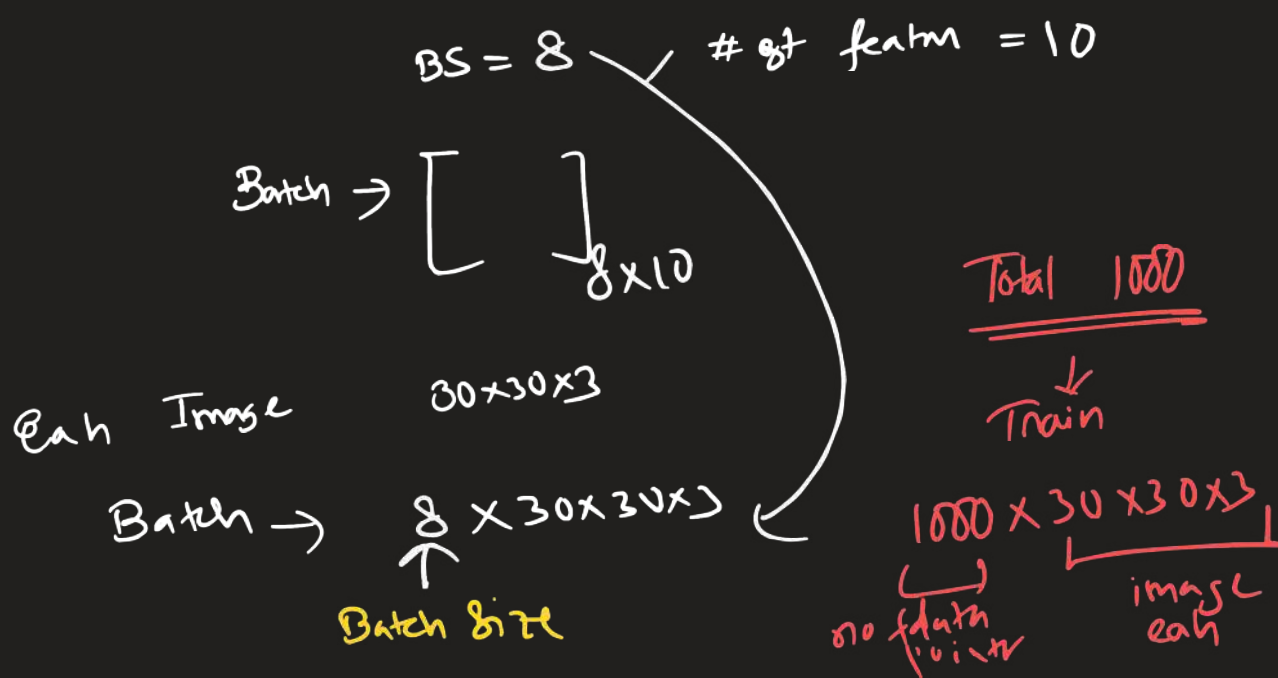 BS = 8 # of featm = 10
Batch → [ ] 8×10
Total 1000
Each Image 30×30×3
Train
Batch → 8 × 30×30×3
1000 × 30×30×3
Batch Size
no of data points
image each